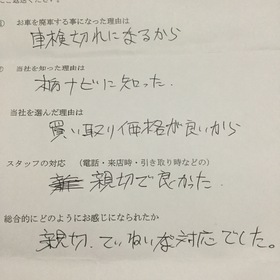 お車を廃車する事になった理由は
車検切れになるから
当社を知った理由は
栃ナビに知った.
当社を選んだ理由は
買い取り価格が良いから
スタッフの対応　(電話・来店時・引き取り時などの)
親切で良かった
総合的にどのようにお感じになられたか
親切.ていねいな対応でした。